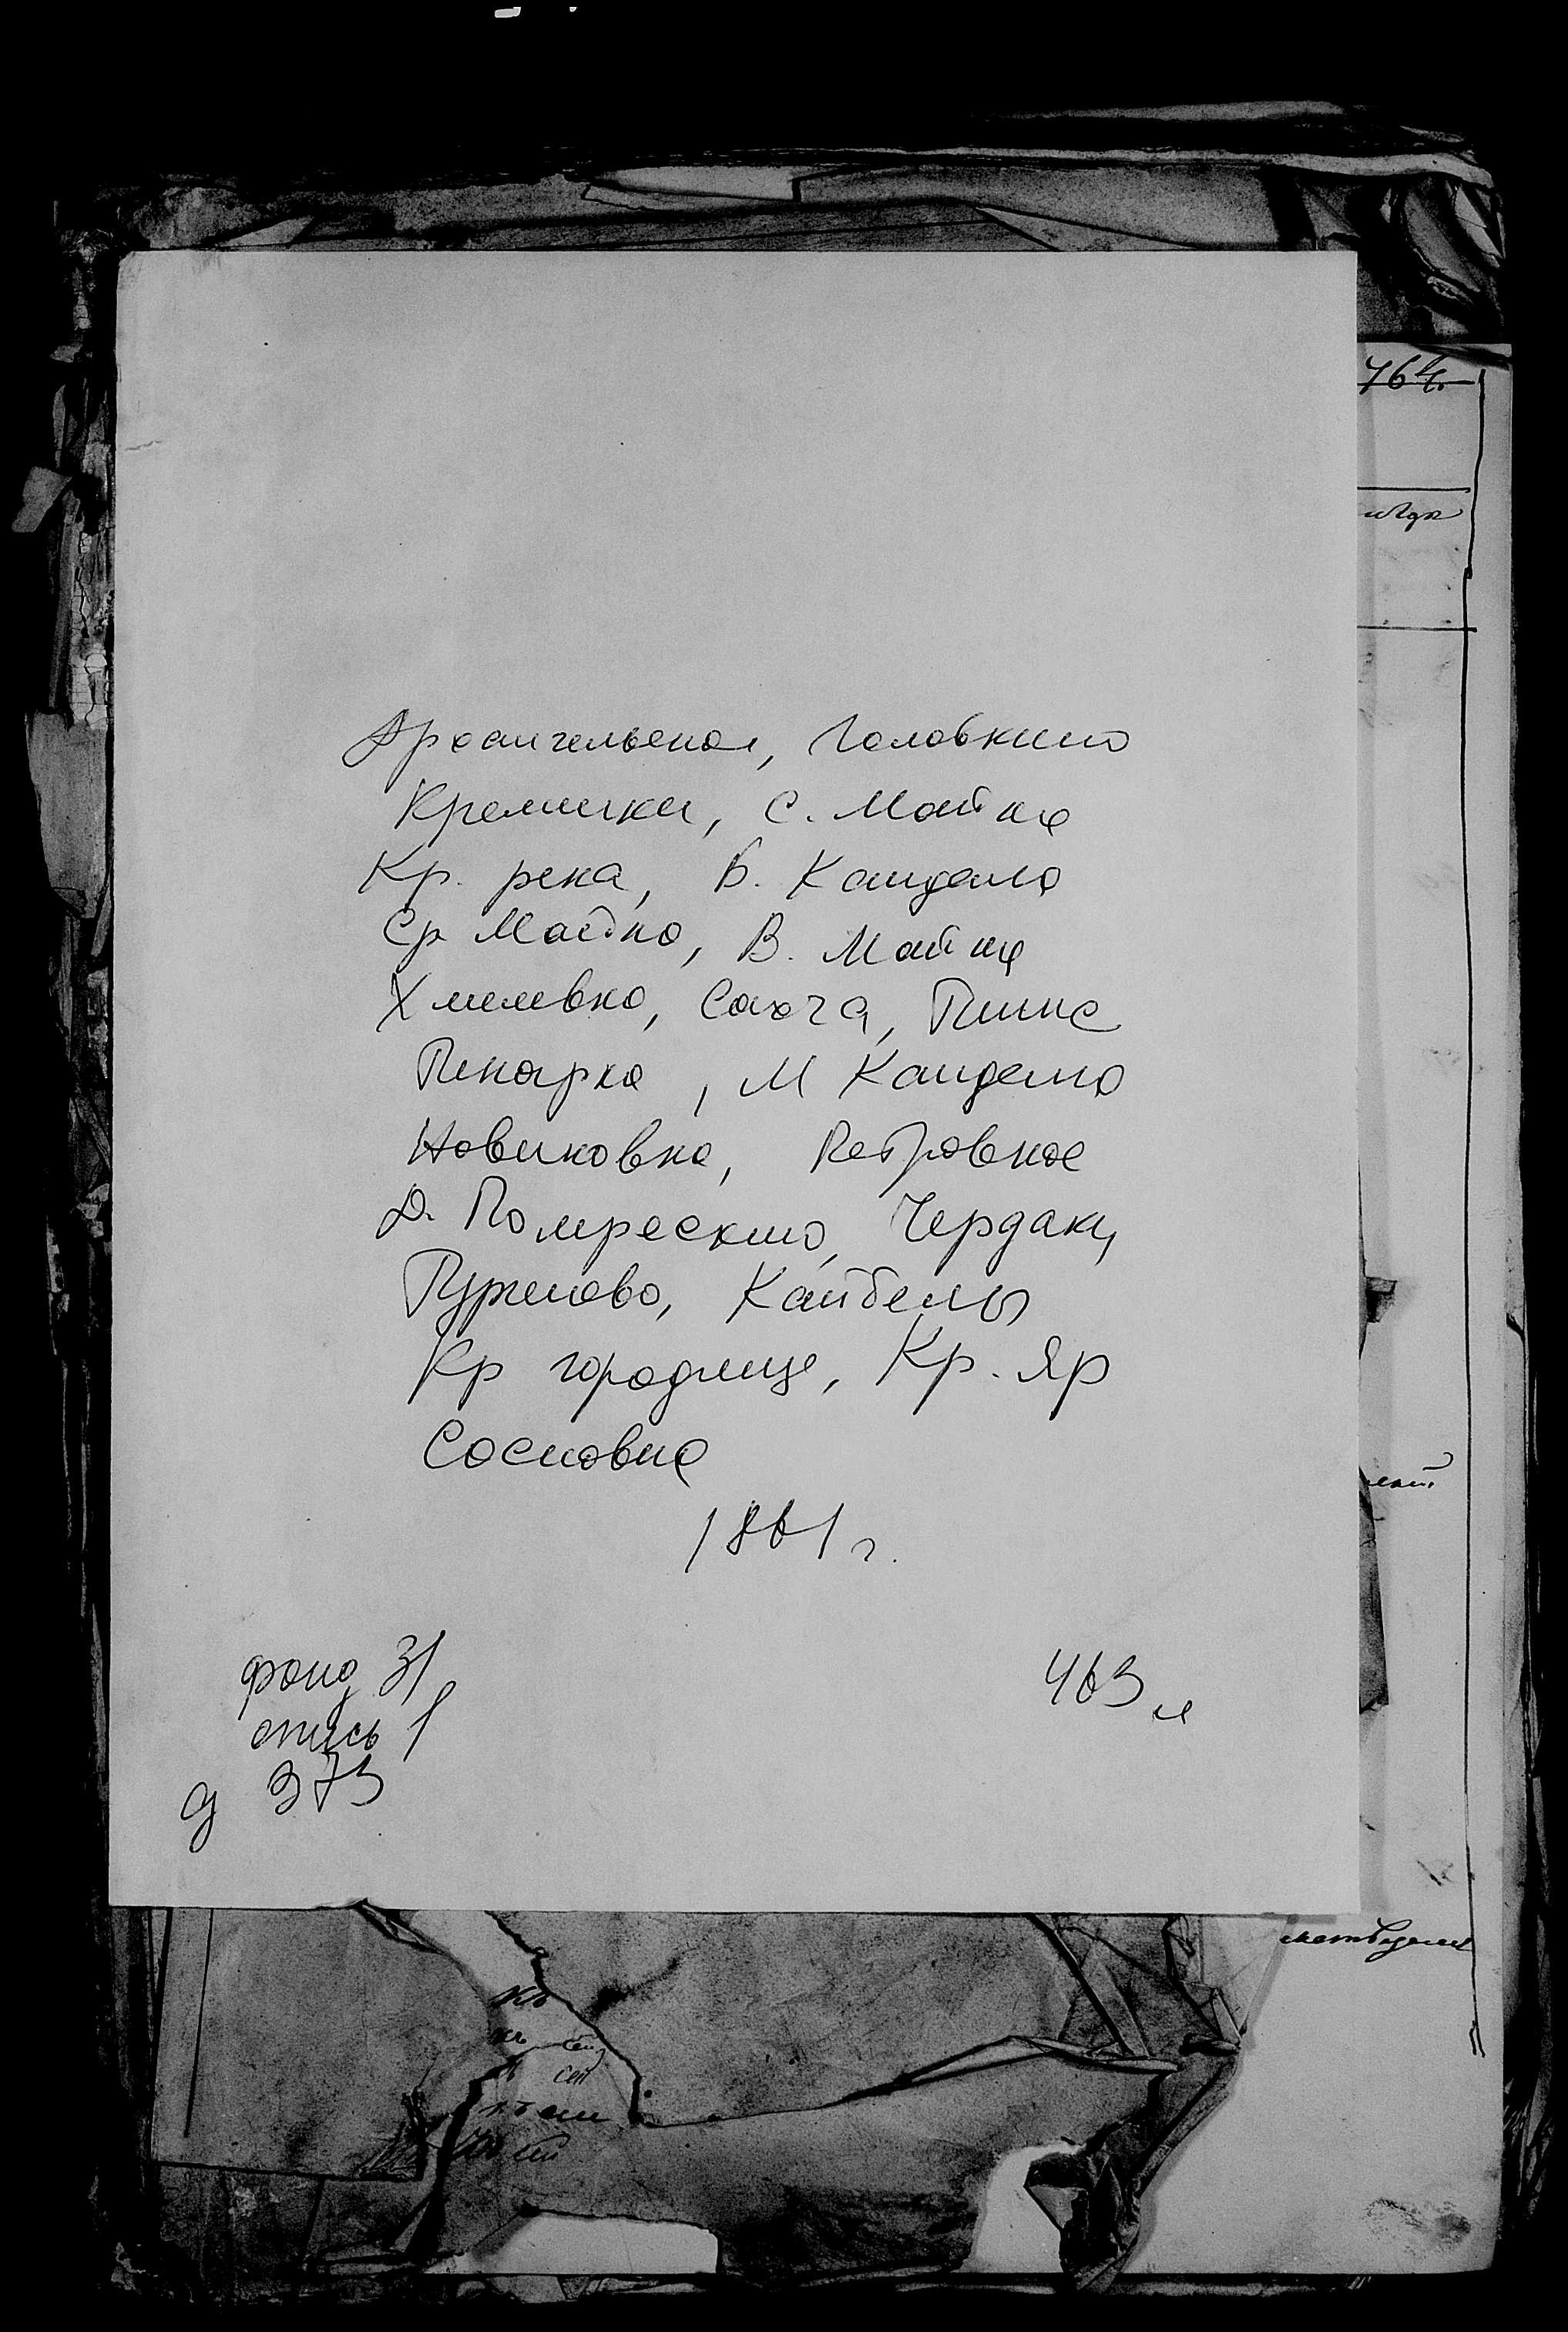 464.
Архангельское, Головкино
Кременки, С. Майна
Кр. река, Б. Кандала
Ср Майна, В. Майна
Хмелевка, Сахча,
, М Кандала
Новиковка, Петровское
Д. Помряскино, Чердаки,
Куренево, Кайбелы
Кр городище, Кр. Яр
Сосновка
1861 г.
фонд 31
опись 1
д 373
463 л